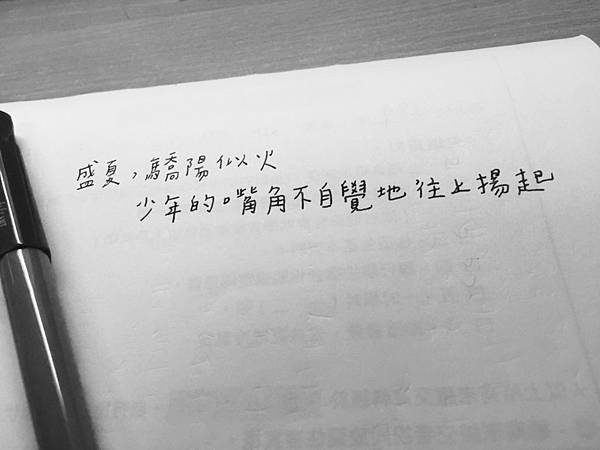 盛夏，驕陽似火
少年的嘴角不自覺地往上揚起